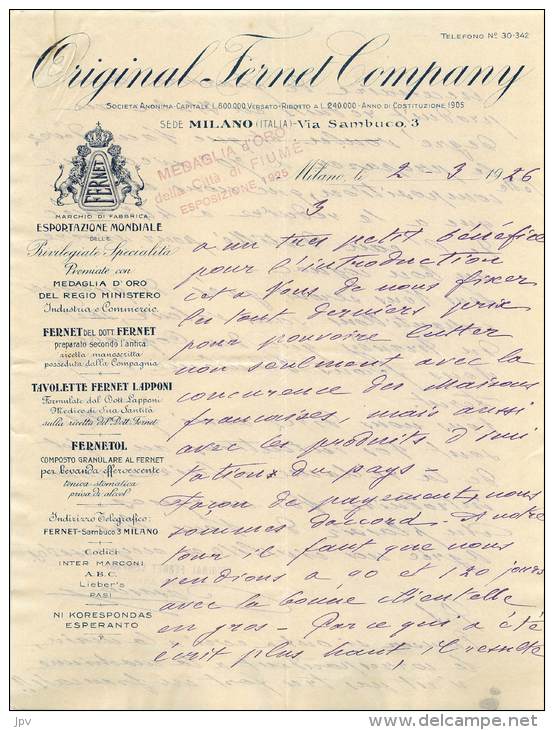 TELEFONO Nº 30-342
Original Fernet Company
SOCIETÀ ANONIMA-CAPITALE L. 600.000 VERSATO-RIDOTTO A L. 240.000-ANNO DI COSTITUZIONE 1905
SEDE MILANO (ITALIA)-VIA SAMBUCO, 3
MEDAGLIA d'ORO
della Città di FIUME
ESPOSIZIONE 1925
Milano, li 2 - 3 1926
FERNET
MARCHIO DI FABBRICA
ESPORTAZIONE MONDIALE
DELLE
Privilegiate Specialità
Premiate con
MEDAGLIA D'ORO
DEL REGIO MINISTERO
Industria e Commercio.
FERNET DEL DOTT. FERNET
preparato secondo l'antica
ricetta manoscritta
posseduta dalla Compagnia
TAVOLETTE FERNET LAPPONI
Formulate dal Dott. Lapponi
Medico di Sua Santità
sulla ricetta del Dott. Fernet
FERNETOL
COMPOSTO GRANULARE AL FERNET
per bevanda effervescente
tonica-stomatica
priva di alcool
Indirizzo Telegrafico:
FERNET-Sambuco 3 MILANO
Codici
INTER MARCONI
A.B.C.
Lieber's
PASI
NI KORESPONDAS
ESPERANTO
3
a un tres petit bénéfice
pour l'introduction
et a Vous de nous fixer
les tout derniers prix
pour pouvoire lutter
non seulment avec la
concurence des Maisons
francaises, mais aussi
avec les produits d'imi
tations du pays -
Facon de payement, nous
sommes d'accord. A notre
tour il faut que nous
vendions a 90 et 120 jours
avec la bonne clientelle
en gros - Par ce qui a été
écrit plus haut, il resulte
JPV
delcampe.net